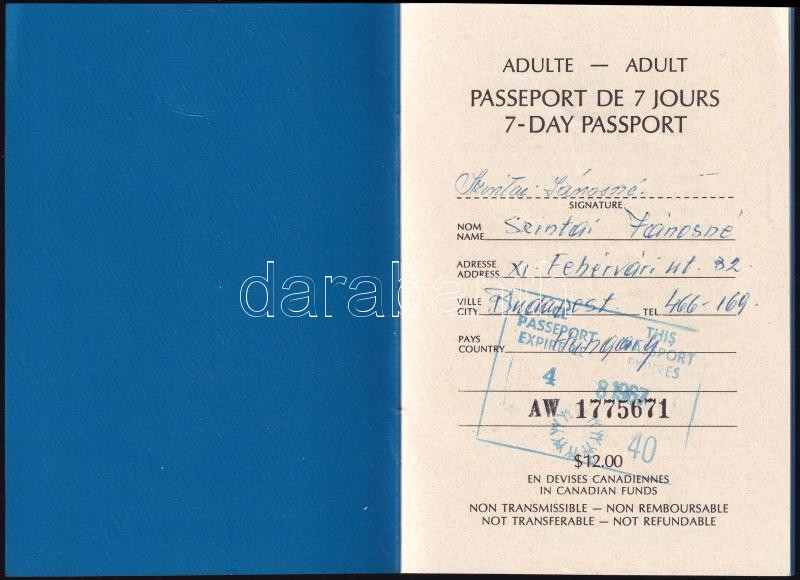 ADULTE — ADULT
PASSEPORT DE 7 JOURS
7-DAY PASSPORT
Szintai Jánosné.
SIGNATURE
NOM
NAME Szintai Jánosné
ADRESSE
ADDRESS XI. Fehérvári ut. 32.
VILLE
CITY Budapest. TEL. 466-169.
PAYS
COUNTRY Hungary
CE PASSEPORT EXPIRE LE
THIS PASSPORT EXPIRES
4 8 1967
AW 1775671
40
$12.00
EN DEVISES CANADIENNES
IN CANADIAN FUNDS
NON TRANSMISSIBLE — NON REMBOURSABLE
NOT TRANSFERABLE — NOT REFUNDABLE
darabanth